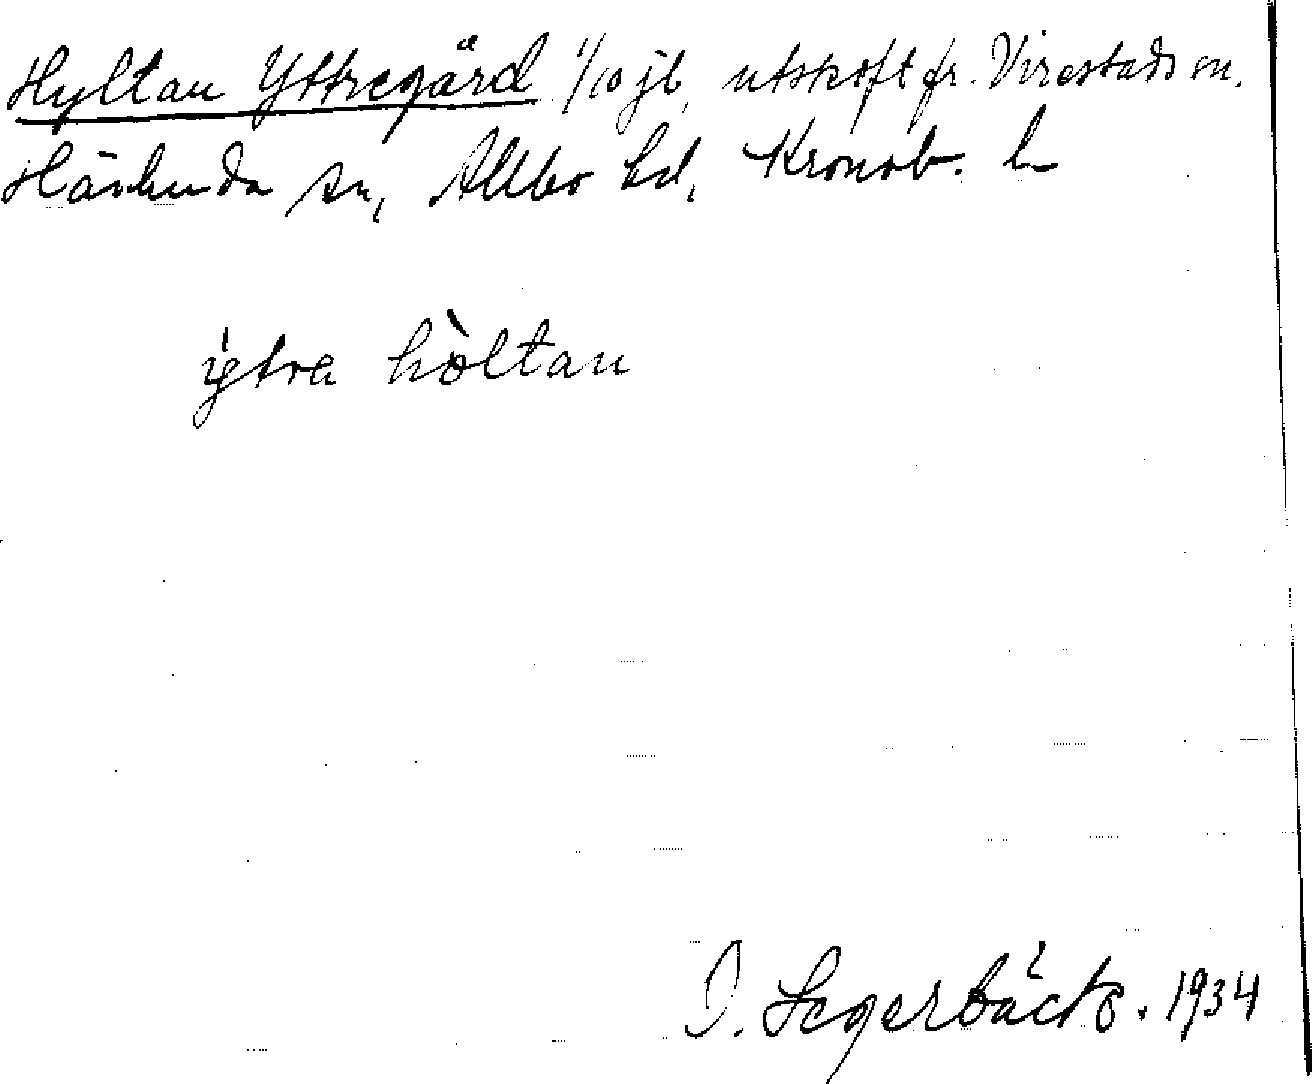 Hyltan Yttregård 1/10 jb, utskoft fr. Virestads sn.
Härlunda sn, Allbo hd, Kronob. l
ytra høltan
O. Segerbäck. 1934